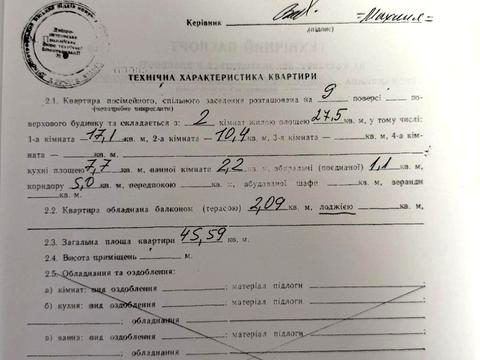 Керівник
(підпис)
ТЕХНІЧНА ХАРАКТЕРИСТИКА КВАРТИРИ
2.1. Квартира посімейного, спільного заселення розташована на 9 поверсі по-
(непотрібне викреслити)
верхового будинку та складається з: 2 кімнат жилою площею 27,5 кв. м, у тому числі:
1-а кімната 17,1 кв. м, 2-а кімната 10,4 кв. м, 3-я кімната кв. м, 4-а кім-
ната кв. м,
кухні площею 7,7 кв. м, ванної кімнати 2,2 кв. м, вбиральні (поєднаної) 1,1 кв. м,
коридору 5,0 кв. м, передпокою кв. м, вбудованої шафи кв. м, веранди
кв. м.
2.2. Квартира обладнана балконом (терасою) 2,09 кв. м, лоджією кв. м,
2.3. Загальна площа квартири 45,59 кв. м.
2.4. Висота приміщень м.
2.5. Обладнання та оздоблення:
а) кімнат: вид оздоблення ; матеріал підлоги
б) кухня: вид оздоблення ; матеріал підлоги
; обладнання
в) ванна: вид оздоблення ; матеріал підлоги
; обладнання